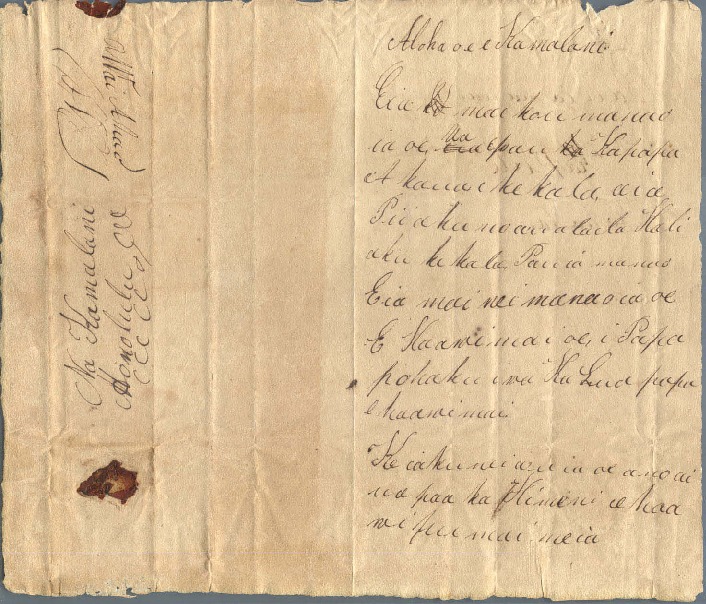 Aloha oe e Kamalani
Eia mai kou manao
ia oe Ua pau Kapapa
A kana i ke kala, aia
Pii aku no au alaila Hali
aku ke kala Pau ia manao
Eia mai nei manao ia oe
E Haawi mai oe, i Papa
pohaku i wa Ka Lua papa
e haawi mai
Ke i aku nei au ia oe anoai
ua paa ka Himeni e haa
wi pu mai ia
Na Kamalani
Honolulu